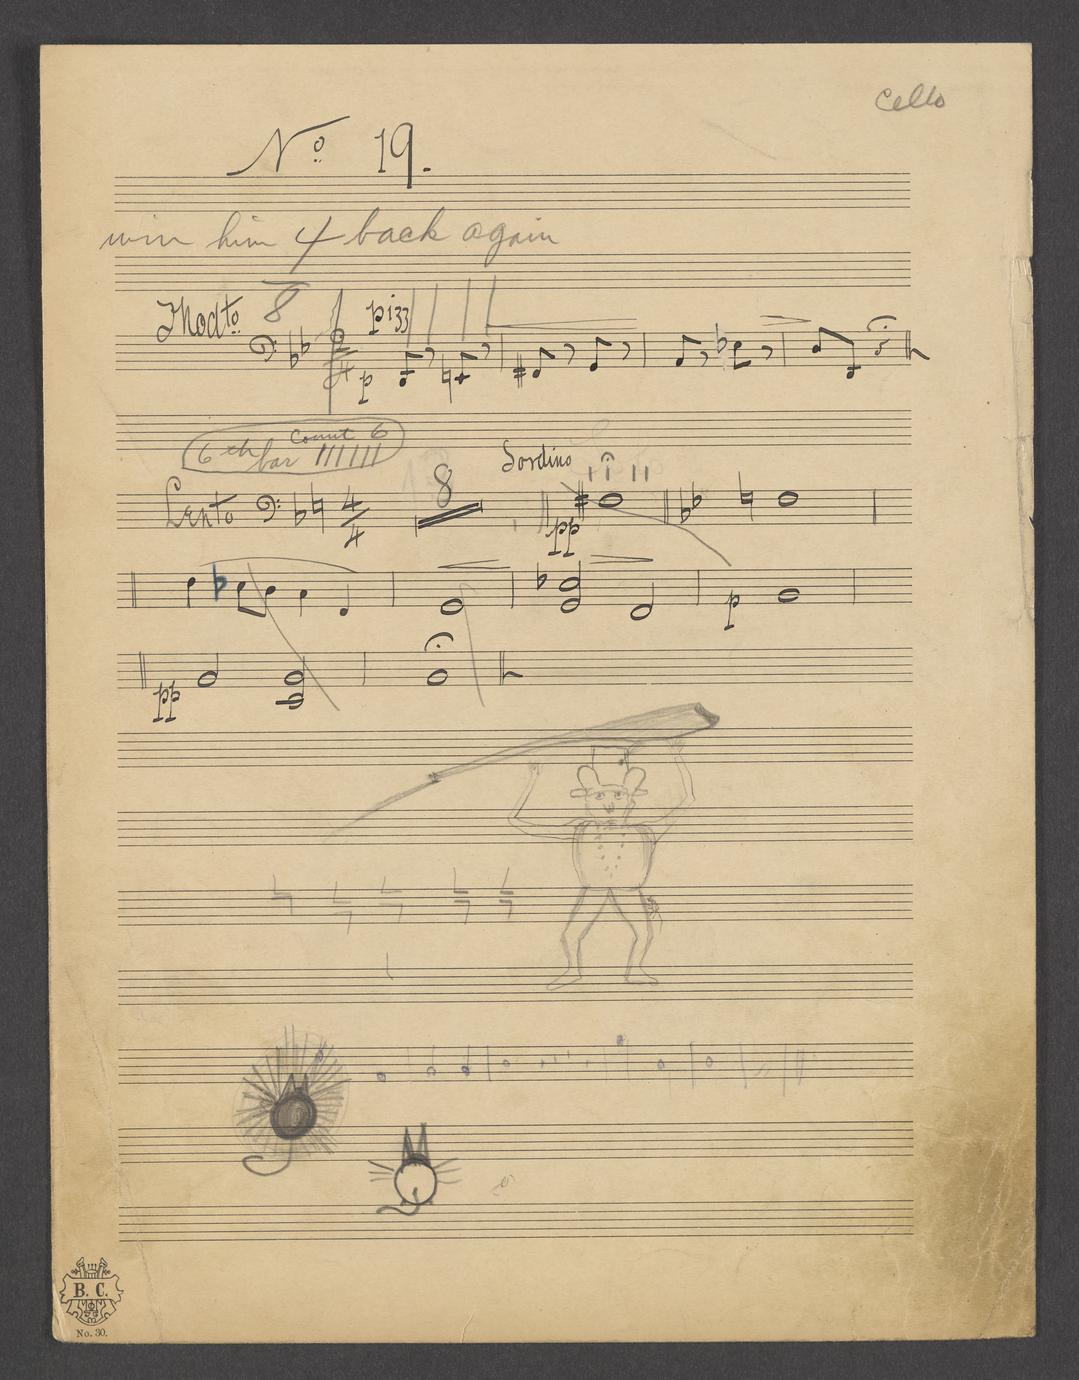 Cello
No 19.
win him 4 back again
8
Modto. pizz
p
6th bar Count 6
Sordino
Lento 4/4 8
pp
p
pp
B. C.
No. 30.